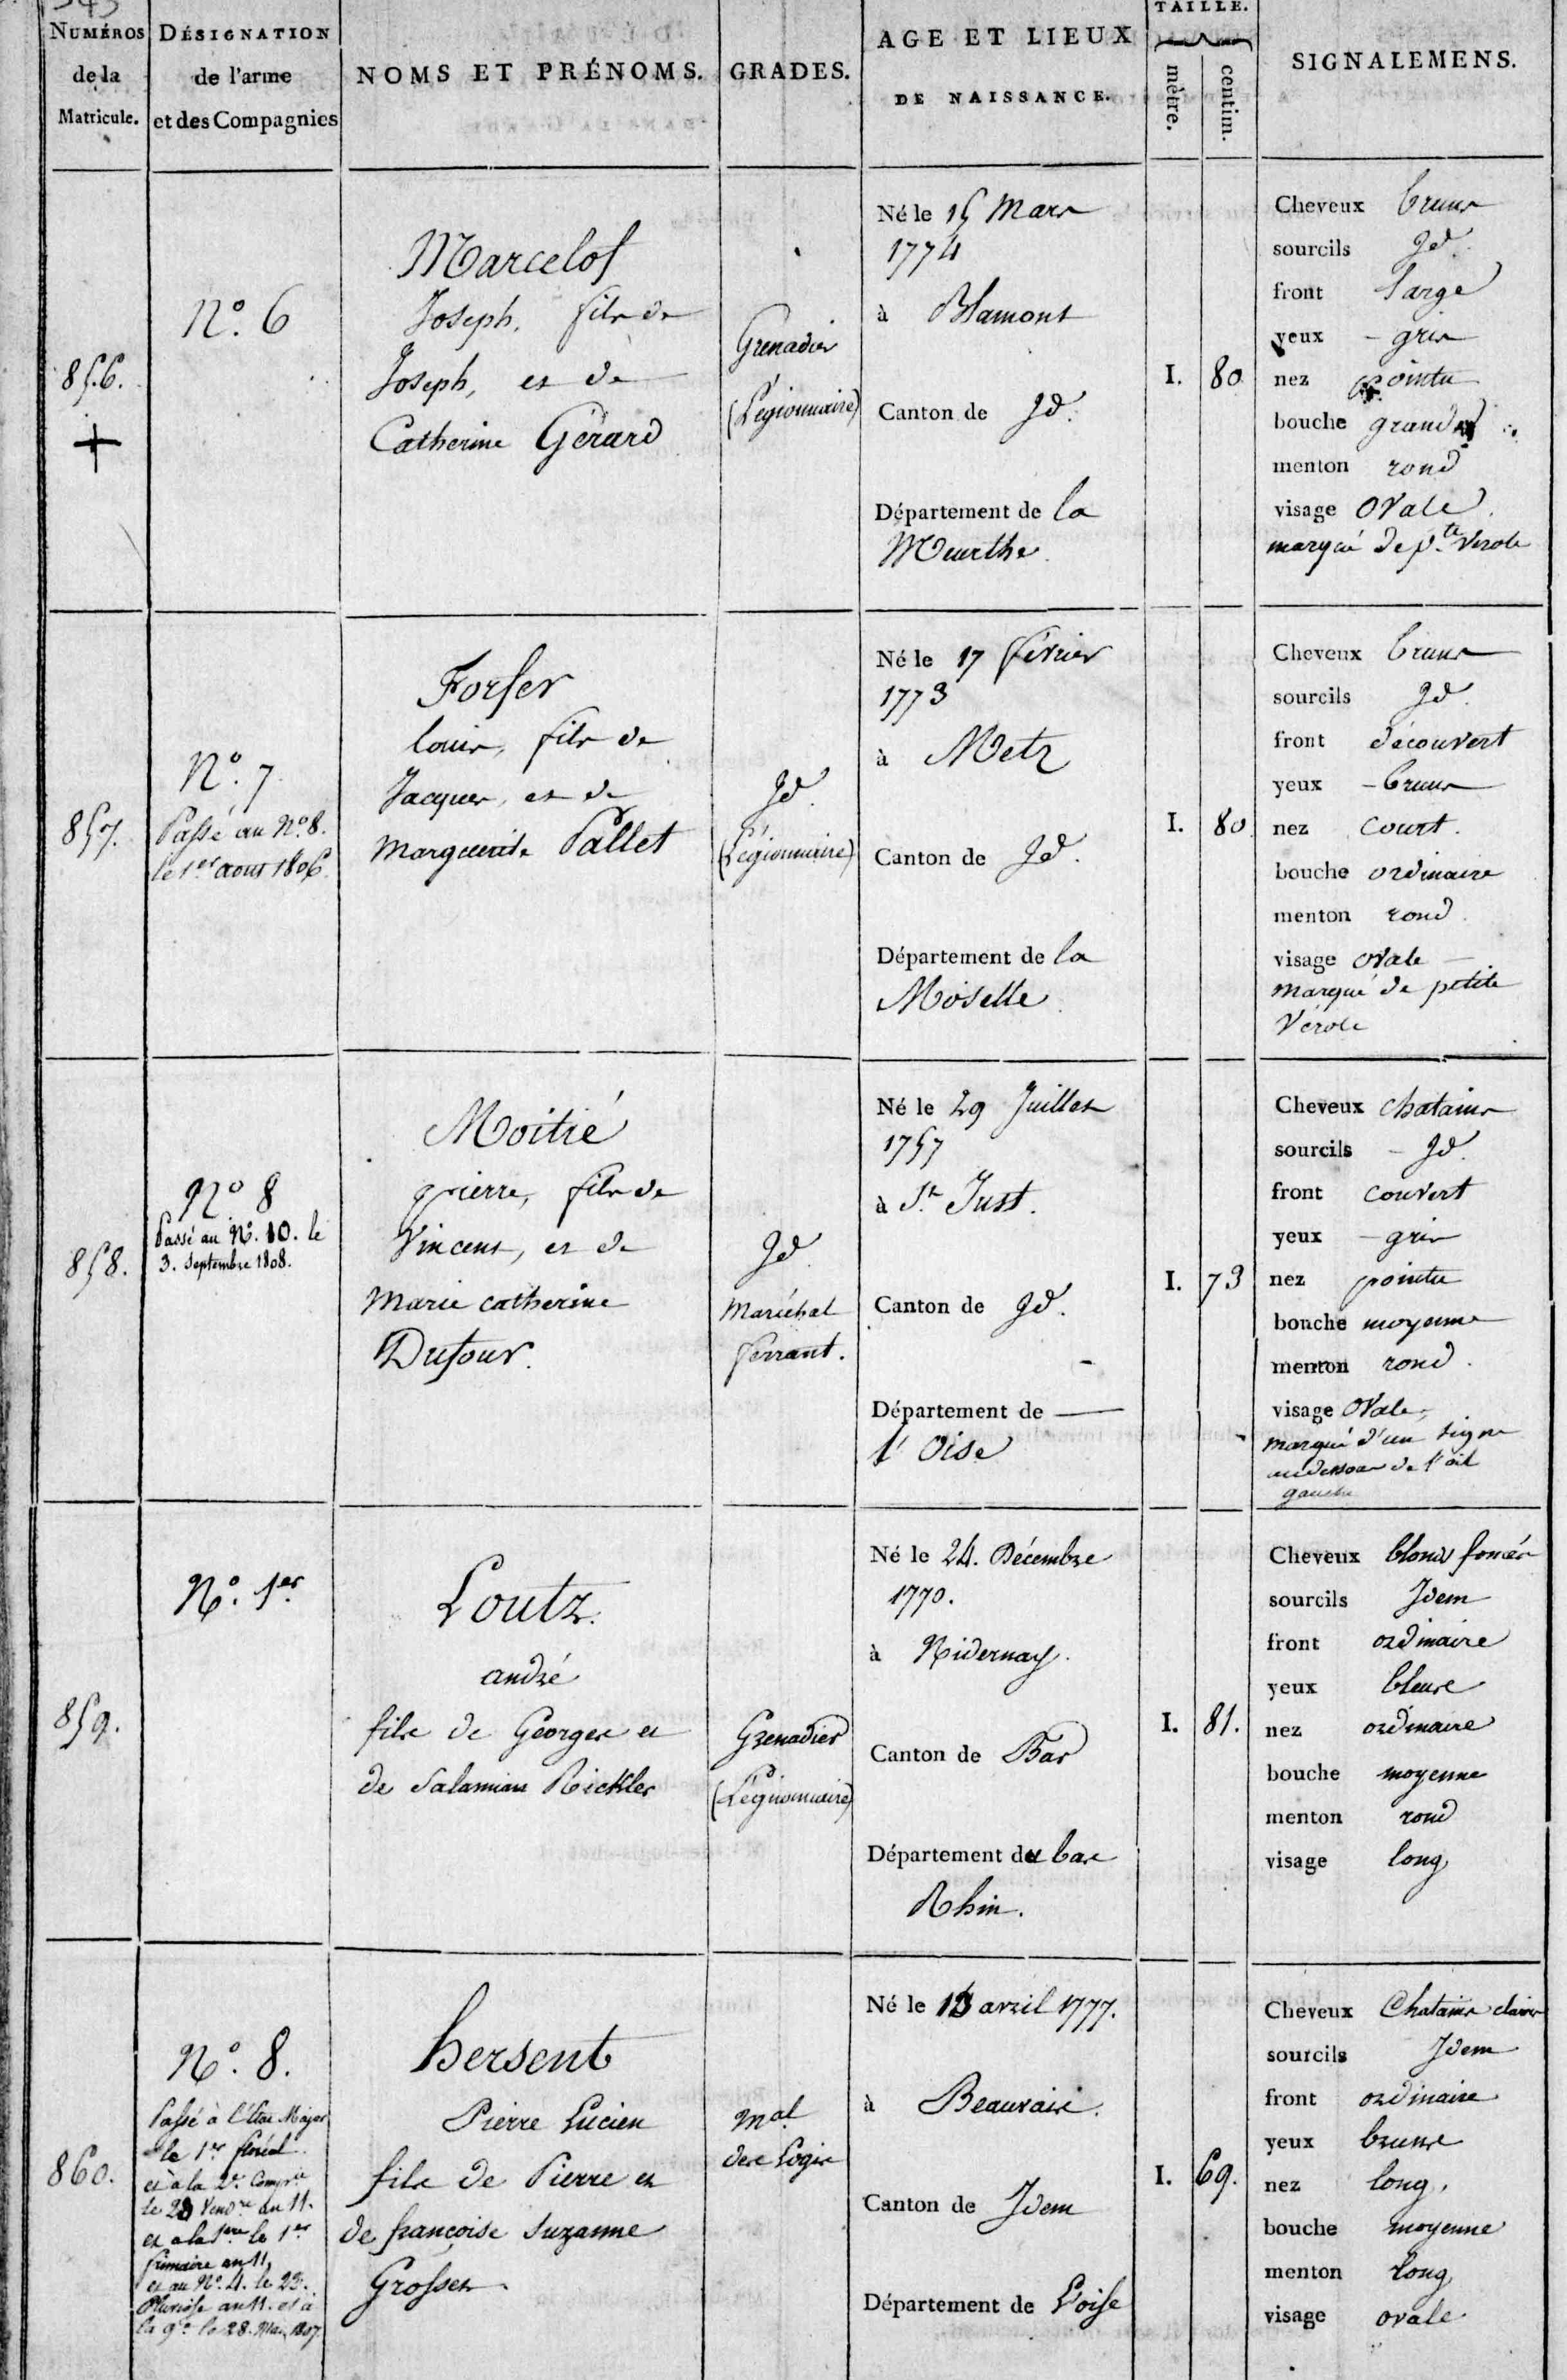 NUMÉROS
de la
Matricule.
DÉSIGNATION
de l'arme
et des Compagnies
NOMS ET PRÉNOMS.
GRADES.
AGE ET LIEUX
DE NAISSANCE.
TAILLE.
mètre.
centim.
SIGNALEMENS.
856.
+
N.º 6
Marcelot
Joseph, fils de
Joseph, et de
Catherine Gérard
Grenadier
(Légionnaire)
Né le 15 Mars
1774
à Blamont
Canton de Id.
Département de la
Meurthe.
I. 80
Cheveux bruns
sourcils Id.
front large
yeux - gris
nez pointu
bouche grande
menton rond
visage ovale
marqué de p.te Verole
857.
N.º 7.
Passé au N.º 8.
le 1.er aout 1806.
Forser
louis, fils de
Jacques, et de
Marguerite Pallet
Id.
(Légionnaire)
Né le 17 février
1773
à Metz
Canton de Id.
Département de la
Moselle.
I. 80
Cheveux bruns
sourcils Id.
front découvert
yeux - bruns
nez court.
bouche ordinaire
menton rond
visage ovale
Marqué de petite
Vérole
858.
N.º 8
Passé au N.º 10. le
3. Septembre 1808.
Moitié
pierre, fils de
Vincent, et de
Marie catherine
Dufour.
Id.
Maréchal
ferrant.
Né le 29 Juillet
1757
à S.t Just.
Canton de Id.
Département de —
l'Oise
I. 73
Cheveux chatains
sourcils - Id.
front couvert
yeux - gris
nez pointu
bouche moyenne
menton rond.
visage ovale,
marqué d'un signe
au dessous de l'œil
gauche
859.
N.º 1.er
Loutz.
andré
fils de Georges et
de Salamian Rickler
Grenadier
(Légionnaire)
Né le 24. Décembre
1770.
à Nidernay.
Canton de Bar
Département du bas
Rhin.
I. 81.
Cheveux blonds foncés
sourcils Idem
front ordinaire
yeux bleus
nez ordinaire
bouche moyenne
menton rond
visage long
860.
N.º 8.
Passé à l'Etat Major
le 1.er floréal
et à la 2.e Comp.ie
le 23 Vend.re an 11.
et a la 1.ere le 1.er
frimaire an 11,
et au N.º 4. le 23.
Pluviose an 11. et à
la 9.e le 28. Mars 1807.
hersent
Pierre Lucien
fils de Pierre et
de françoise Suzanne
Grosset
M.al
des Logis
Né le 13 avril 1777.
à Beauvais.
Canton de Idem
Département de L'oise
I. 69.
Cheveux Chatains clairs
sourcils Idem
front ordinaire
yeux bruns
nez long,
bouche moyenne
menton long
visage ovale